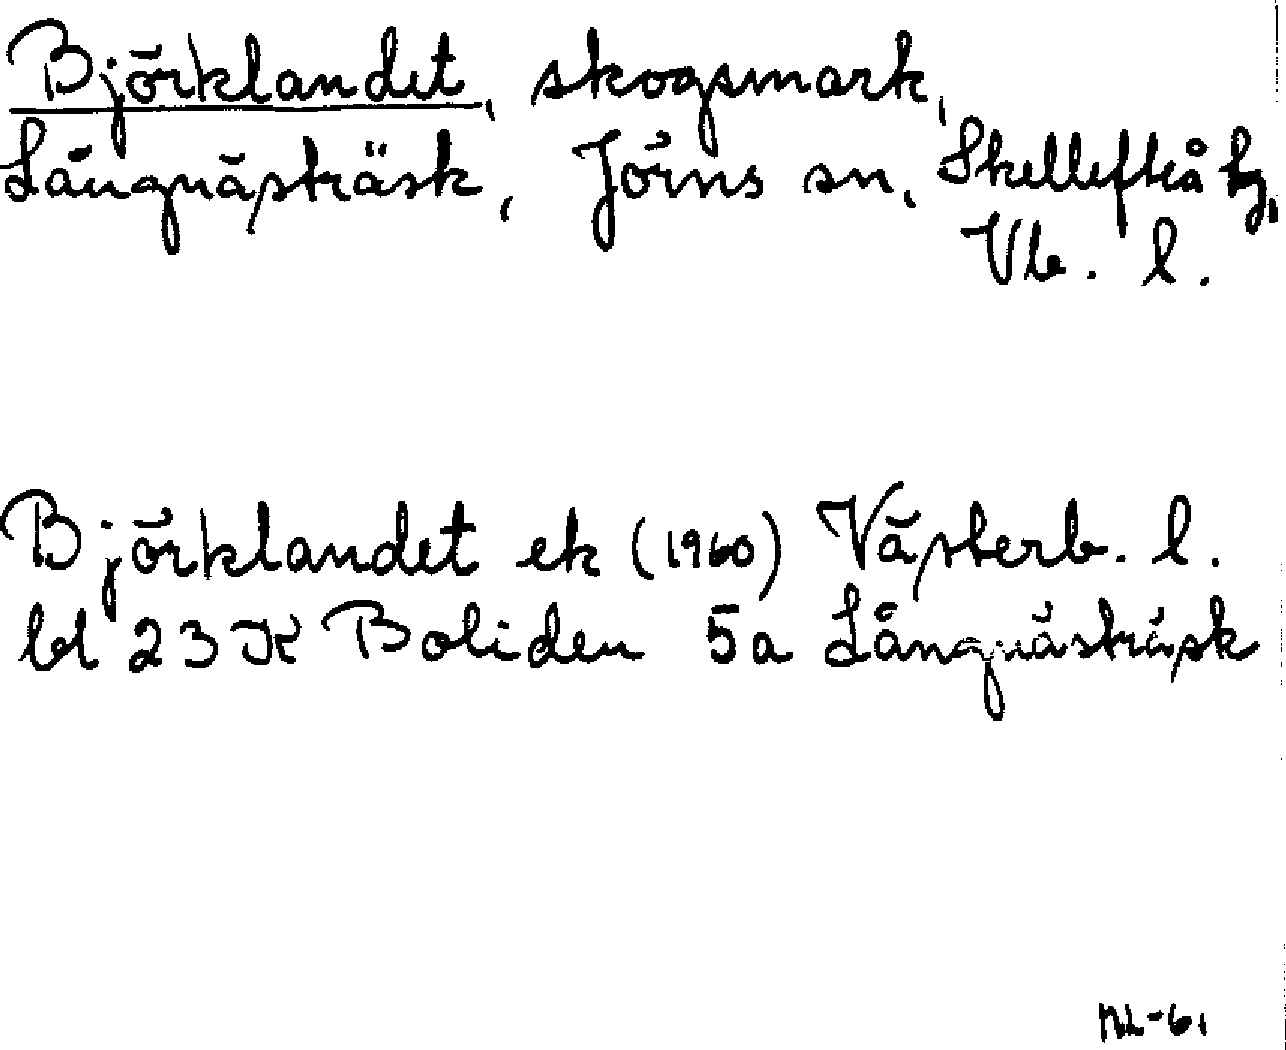 Björklandet, skogsmark,
Långnästräsk, Jörns sn, Skellefteå tg,
Vb. l.
Björklandet ek (1960) Västerb. l.
bl 23 K Boliden 5a Långnästräsk